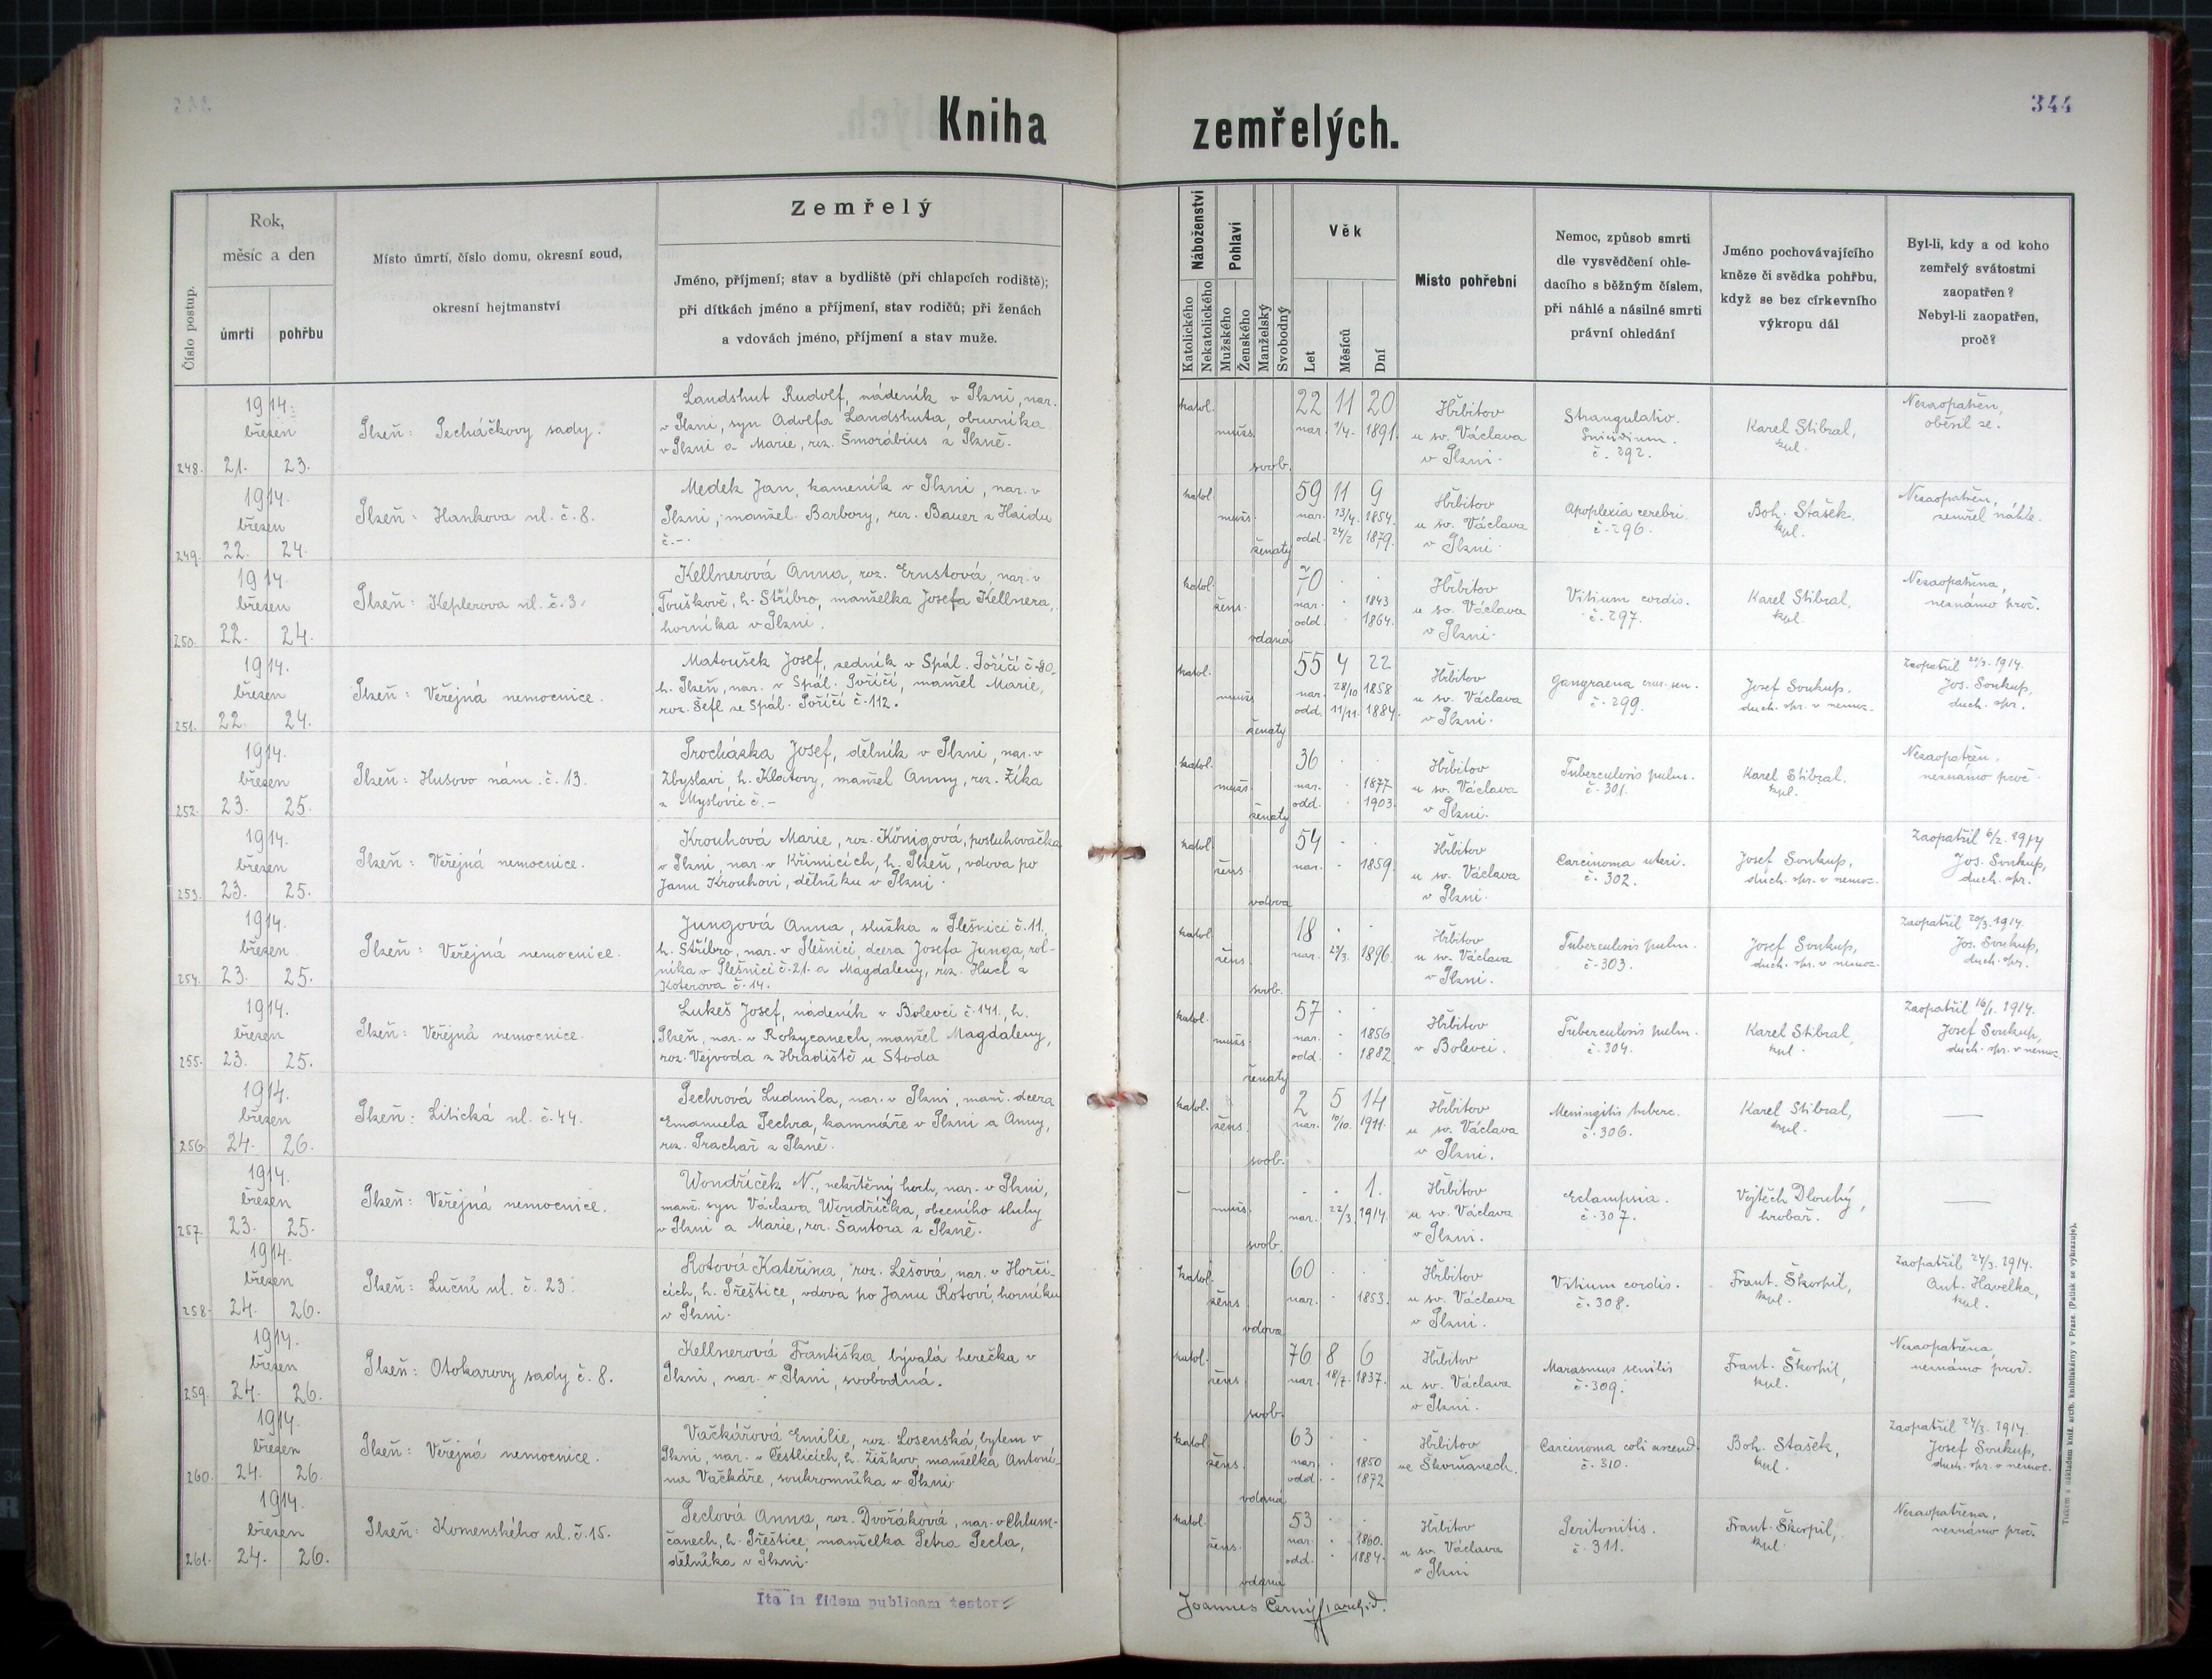 344
Kniha zemřelých.
Číslo postup.
Rok,
měsíc a den
úmrtí
pohřbu
Místo úmrtí, číslo domu, okresní soud,
okresní hejtmanství
Zemřelý
Jméno, příjmení; stav a bydliště (při chlapcích rodiště);
při dítkách jméno a příjmení, stav rodičů; při ženách
a vdovách jméno, příjmení a stav muže.
Náboženství
Katolického
Nekatolického
Pohlaví
Mužského
Ženského
Manželský
Svobodný
Věk
Let
Měsíců
Dní
Místo pohřební
Nemoc, způsob smrti
dle vysvědčení ohle-
dacího s běžným číslem,
při náhlé a násilné smrti
právní ohledání
Jméno pochovávajícího
kněze či svědka pohřbu,
když se bez církevního
výkropu dál
Byl-li, kdy a od koho
zemřelý svátostmi
zaopatřen?
Nebyl-li zaopatřen,
proč?
248.
1914.
březen
21. 23.
Plzeň: Pecháčkovy sady.
Landshut Rudolf, nádeník v Plzni, nar.
v Plzni, syn Adolfa Landshuta, obuvníka
v Plzni a Marie, roz. Šmorábius z Plzně.
katol. mužs. svob.
22 11 20
nar. 1/4. 1891.
Hřbitov
u sv. Václava
v Plzni.
Strangulatio.
Suicidium.
č. 292.
Karel Stibral,
kpl.
Nezaopatřen,
oběsil se.
249.
1914.
březen
22. 24.
Plzeň: Hankova ul. č. 8.
Medek Jan, kameník v Plzni, nar. v
Plzni, manžel Barbory, roz. Bauer z Haidu
č. -.
katol. mužs. ženatý
59 11 9
nar. 13/4. 1854.
odd. 24/2 1879.
Hřbitov
u sv. Václava
v Plzni.
Apoplexia cerebri.
č. 296.
Boh. Stašek,
kpl.
Nezaopatřen,
zemřel náhle.
250.
1914.
březen
22. 24.
Plzeň: Keplerova ul. č. 3.
Kellnerová Anna, roz. Ernstová, nar. v
Touškově, h. Stříbro, manželka Josefa Kellnera,
horníka v Plzni.
katol. žens. vdaná
70 . .
nar. . 1843
odd. . 1864.
Hřbitov
u sv. Václava
v Plzni.
Vitium cordis.
č. 297.
Karel Stibral,
kpl.
Nezaopatřena,
neznámo proč.
251.
1914.
březen
22. 24.
Plzeň: Veřejná nemocnice.
Matoušek Josef, zedník v Spál. Poříčí č. 80,
h. Plzeň, nar. v Spál. Poříčí, manžel Marie,
roz. Šefl ze Spál. Poříčí č. 112.
katol. mužs. ženatý
55 4 22
nar. 28/10 1858
odd. 11/11. 1884.
Hřbitov
u sv. Václava
v Plzni.
Gangraena crur. sen.
č. 299.
Josef Soukup,
duch. spr. v nemoc.
Zaopatřil 1914.
Jos. Soukup,
duch. spr.
252.
1914.
březen
23. 25.
Plzeň: Husovo nám. č. 13.
Procházka Josef, dělník v Plzni, nar. v
Zbyslavi h. Klatovy, manžel Anny, roz. Žika
z Myslovic č. -
katol. mužs. ženatý
36 . .
nar. . 1877
odd. . 1903.
Hřbitov
u sv. Václava
v Plzni.
Tuberculosis pulm.
č. 301.
Karel Stibral,
kpl.
Nezaopatřen,
neznámo proč.
253.
1914.
březen
23. 25.
Plzeň: Veřejná nemocnice.
Krouhová Marie, roz. Königová, posluhovačka
v Plzni, nar. v Křimicích, h. Plzeň, vdova po
Janu Krouhovi, dělníku v Plzni.
katol. žens. vdova
54 . .
nar. . 1859.
Hřbitov
u sv. Václava
v Plzni.
Carcinoma uteri.
č. 302.
Josef Soukup,
duch. spr. v nemoc.
Zaopatřil 6/2. 1914
Jos. Soukup,
duch. spr.
254.
1914.
březen
23. 25.
Plzeň: Veřejná nemocnice.
Jungová Anna, služka v Plešnici č. 11.,
h. Stříbro, nar. v Plešnici, dcera Josefa Junga, rol-
níka v Plešnici č. 21. a Magdaleny, roz. Hucl z
Koterova č. 14.
katol. žens. svob.
18 . .
nar. 23/3. 1896.
Hřbitov
u sv. Václava
v Plzni.
Tuberculosis pulm.
č. 303.
Josef Soukup,
duch. spr. v nemoc.
Zaopatřil 20/3. 1914.
Jos. Soukup,
duch. spr.
255.
1914.
březen
23. 25.
Plzeň: Veřejná nemocnice.
Lukeš Josef, nádeník v Bolevci č. 141., h.
Plzeň, nar. v Rokycanech, manžel Magdaleny,
roz. Vejvoda z Hradiště u Stoda
katol. mužs. ženatý
57 . .
nar. . 1856
odd. . 1882
Hřbitov
v Bolevci.
Tuberculosis pulm.
č. 304.
Karel Stibral,
kpl.
Zaopatřil 16/1. 1914.
Josef Soukup,
duch. spr. v nemoc.
256.
1914.
březen
24. 26.
Plzeň: Litická ul. č. 44.
Pechrová Ludmila, nar. v Plzni, manž. dcera
Emanuela Pechra, kamnáře v Plzni a Anny,
roz. Prachař z Plzně.
katol. žens. svob.
2 5 14
nar. 10/10. 1911.
Hřbitov
u sv. Václava
v Plzni.
Meningitis tuberc.
č. 306.
Karel Stibral,
kpl.
—
257.
1914.
březen
23. 25.
Plzeň: Veřejná nemocnice.
Wondříček N., nekřtěný hoch, nar. v Plzni,
manž. syn Václava Wondříčka, obecního sluhy
v Plzni a Marie, roz. Šantora z Plzně.
— mužs. svob.
. . 1.
nar. 22/3. 1914.
Hřbitov
u sv. Václava
v Plzni.
Eclampsia.
č. 307.
Vojtěch Dlouhý,
hrobař.
—
258.
1914.
březen
24. 26.
Plzeň: Luční ul. č. 23.
Rotová Kateřina, roz. Lešová, nar. v Horči-
cích, h. Přeštice, vdova po Janu Rotovi, horníku
v Plzni.
katol. žens. vdova
60 . .
nar. . 1853.
Hřbitov
u sv. Václava
v Plzni.
Vitium cordis.
č. 308.
Frant. Škorpil,
kpl.
Zaopatřil 24/3. 1914.
Ant. Havelka,
kpl.
259.
1914.
březen
24. 26.
Plzeň: Otokarovy sady č. 8.
Kellnerová Františka, bývalá herečka v
Plzni, nar. v Plzni, svobodná.
katol. žens. svob.
76 8 6
nar. 18/7. 1837.
Hřbitov
u sv. Václava
v Plzni.
Marasmus senilis
č. 309.
Frant. Škorpil,
kpl.
Nezaopatřena,
neznámo proč.
260.
1914.
březen
24. 26.
Plzeň: Veřejná nemocnice.
Vačkářová Emilie, roz. Losenská, bytem v
Plzni, nar. v Čestlicích, h. Žižkov, manželka Antoní-
na Vačkáře, soukromníka v Plzni.
katol. žens. vdaná
63 . .
nar. . 1850
odd. . 1872
Hřbitov
ve Skvrňanech.
Carcinoma coli ascend.
č. 310.
Boh. Stašek,
kpl.
Zaopatřil 24/3. 1914.
Josef Soukup,
duch. spr. v nemoc.
261.
1914.
březen
24. 26.
Plzeň: Komenského ul. č. 15.
Peclová Anna, roz. Dvořáková, nar. v Chlum-
čanech, h. Přeštice, manželka Petra Pecla,
dělníka v Plzni.
katol. žens. vdaná
53 . .
nar. . 1860.
odd. . 1884.
Hřbitov
u sv. Václava
v Plzni
Peritonitis.
č. 311.
Frant. Škorpil,
kpl.
Nezaopatřena,
neznámo proč.
Ita in fidem publicam testor
Joannes Černý, archid.
Tiskem a nákladem kníž. arcib. knihtiskárny v Praze. (Patisk se vyhrazuje).